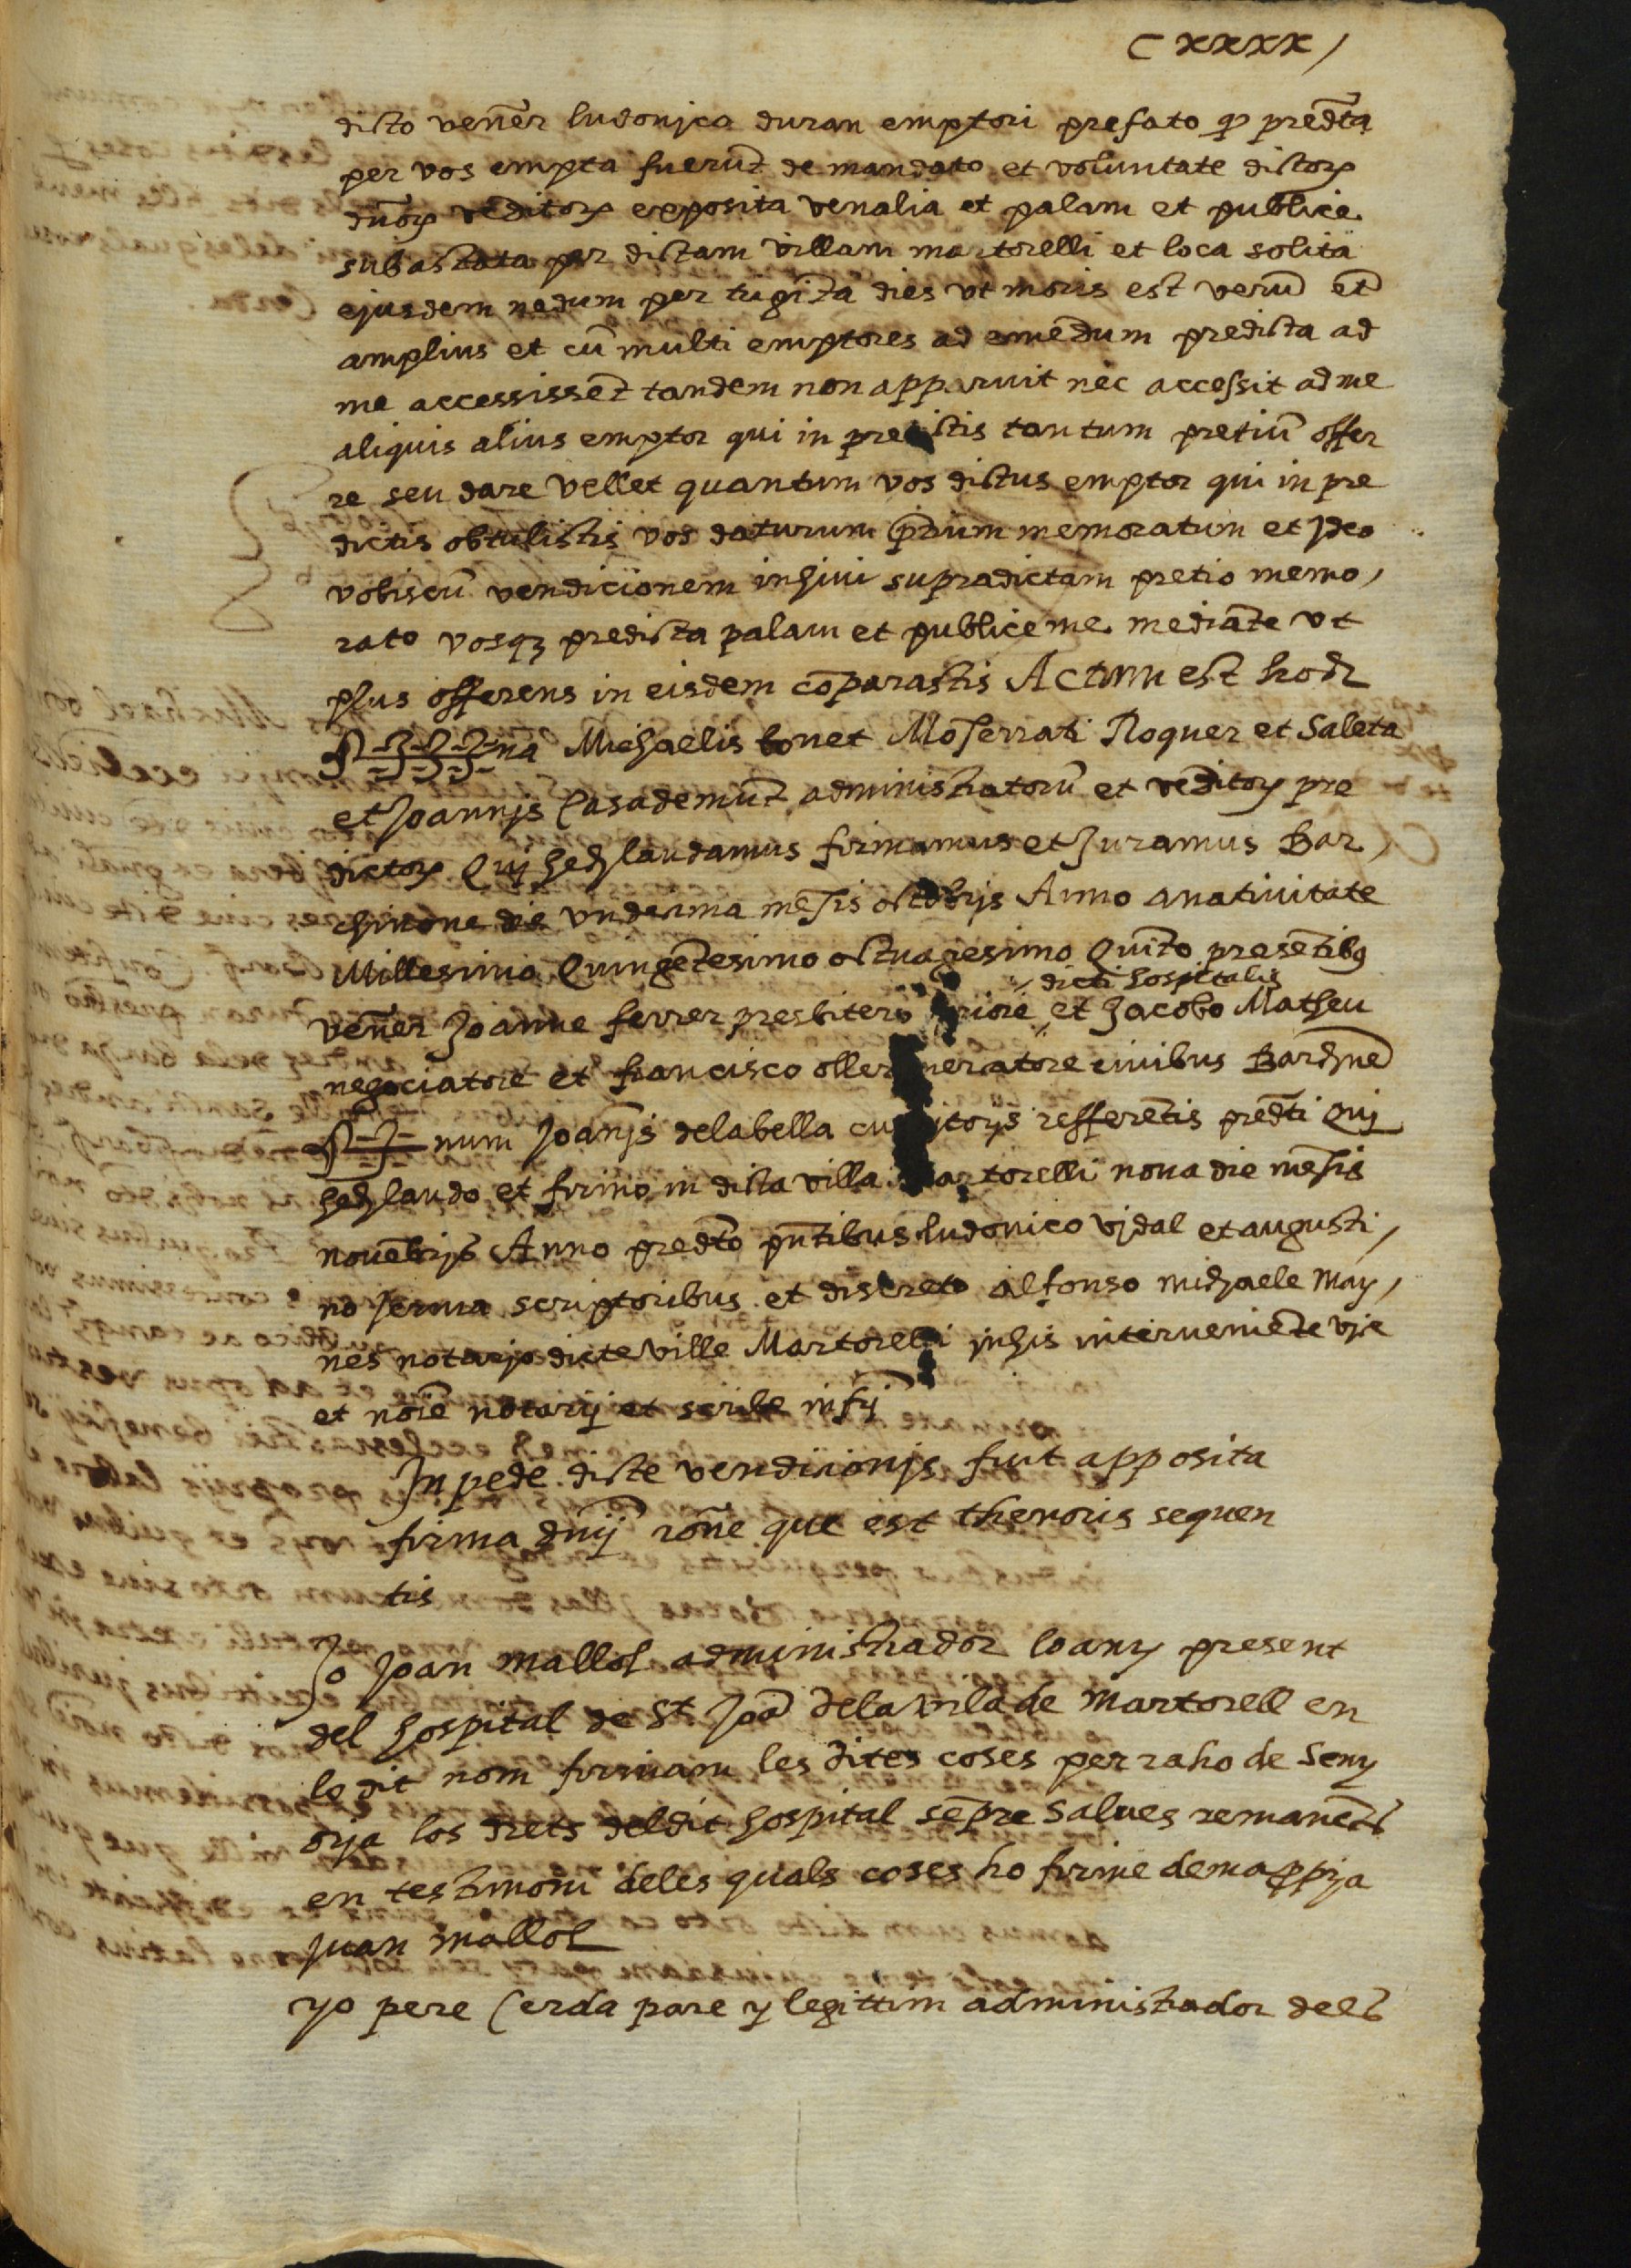 CXXXX
dicto vener̄ ludovico duran emptori prefato ꝙ predc̄ta
per vos empta fuerūt de mandato et voluntate dictoꝝ
dn̄oꝝ vēditoꝝ exposita venalia et palam et publice
subastata per dictam villam martorelli et loca solita
ejusdem nedum per trigīta dies vt moris est verū et̄
amplius et cū multi emptores ad emēdum predicta ad
me accessissēt tandem non apparuit nec accessit ad me
aliquis alius emptor qui in pre ictis tantum pretiū offer
re seu dare vellet quantum vos dictus emptor qui in pre
dictis obtulistis vos daturum memoratum et Ideo
vobiscū vendicionem inhivi supradictam pretio memo,
rato vosqꝫ predicta palam et publice me mediāte vt
plus offerens in eisdem cōparastis Actum est hoc
na Michaelis bonet Moserrati Roquer et Saleta
et Joannjs Casademūt administratorū et vēditoꝝ pre
dictoꝝ Quj hec laudamus firmamus et Juramus Bar,
chinone die vndecima mēsis octobrjs Anno a nativitate
Millesimo Quingētesimo octuagesimo Quīto presētibꝯ
dicti hospitalis
vener̄ Joanne ferrer presbitero riore et Jacobo Matheu
negociatore et francisco oller mercatore civibus Barchne
num Joanjs delabella cu itorjs refferētis predc̄ti Quj
hec laudo et firmo in dicta villa artorelli nona die mēsis
novēbrjs Anno predc̄to pn̄tibus ludovico vjdal et augusti,
no serma scriptoribus et discreto alfonso michaele May,
nes notarjo dicte ville Martorelli jnhis interveniēte vje
et noīe notarij et scribe infrj
Jn pede dicte vendicionjs fuit apposita
firma dn̄ij rōne que est thenoris sequen
tis
Jo Joan mallol administrador loany present
del hospital de St Joā dela vila de Martorell en
lo dit nom firmam les dites coses per raho de Seny
orja los drets deldit hospital sēpre salves remanēts
en testimoni deles quals coses ho firme de ma ꝓpja
Juan mallol
yo pere Cerda pare y legittim administrador dels